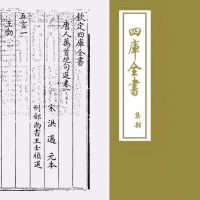 欽定四庫全書
唐人萬首絶句選卷一
宋 洪邁 元本
刑部尚書王士禎選
五言一
王勃
四庫全書
集部